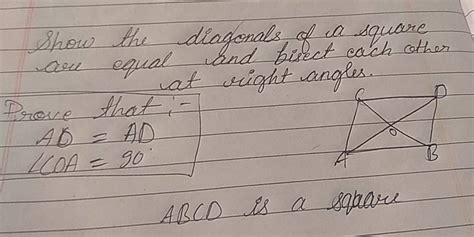 Show the diagonals of a square
are equal and bisect each other
at right angles.
Prove that :-
AD = AD
∠COA = 90°
C D
O
A B
ABCD is a square